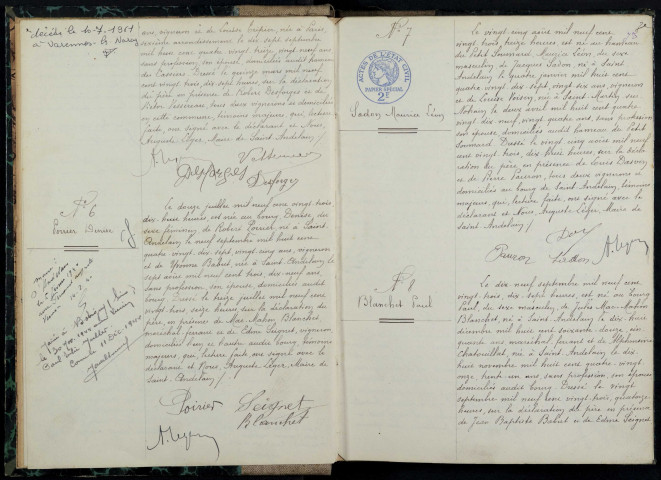 décédé le 6-7-1961
à Varennes-
ans, vigneron et de Louise Crépin, née à Paris,
arrondissement le dix sept septembre
mil huit cent quatre vingt dix neuf ans
sans profession, son épouse, domiciliés audit hameau
des Cassiers Dressé le quinze mars mil neuf
cent vingt trois, dix sept heures, sur la déclaration
du père en présence de Robert Desforges et de
tous deux vignerons et domiciliés
en cette commune, témoins majeurs, qui, lecture
faite, ont signé avec le déclarant et Nous,
Auguste Léger, Maire de Saint Andelain /
Desforges
N° 6
Poirier Denise
Le douze juillet mil neuf cent vingt trois
dix huit heures, est née au bourg Denise, du
sexe féminin, de Robert Poirier né à Saint
Andelain, le neuf septembre mil huit cent
quatre vingt dix sept, vingt cinq ans, vigneron
et de Yvonne Bahut, née à Saint Andelain, le
sept août mil neuf cent trois, dix neuf ans,
sans profession, son épouse, domiciliés audit
bourg Dressé le treize juillet mil neuf cent
vingt trois seize heures sur la déclaration du
père, en présence de Mac-Mahon Blanchet
maréchal ferrant et de Edme Seignet, vigneron
domiciliés tous en audit bourg, témoins
majeurs, qui, lecture faite ont signé avec le
déclarant et Nous, Auguste Léger, Maire de
Saint Andelain /
Poirier Seignet
Blanchet
A. Léger
N° 7
ACTES DE L'ETAT CIVIL
PAPIER SPECIAL
2F
Sadon Maurice Léon
Le vingt cinq août mil neuf cent
vingt trois, treize heures, est né au hameau
du Petit Soumard, Maurice Léon du sexe
masculin, de Jacques Sadon, né à Saint
Andelain, le quatre janvier mil huit cent
quatre vingt dix sept, vingt six ans, vigneron
et de Louise née à Saint Martin sur
Nohain, le deux avril mil huit cent quatre
vingt dix neuf, vingt quatre ans, sans profession
son épouse, domiciliés audit hameau du Petit
Soumard Dressé le vingt cinq août mil neuf
cent vingt trois, dix huit heures, sur la décla
ration du père en présence de Louis
et de Pierre tous deux vignerons et
domiciliés au bourg de Saint Andelain, témoins
majeurs, qui, lecture faite, ont signé avec le
déclarant et Nous, Auguste Léger, Maire de
Saint Andelain /
Sadon A. Léger
N° 8
Blanchet Paul
Le dix neuf septembre mil neuf cent
vingt trois, dix sept heures, est né au bourg
Paul, du sexe masculin, de Jules Mac-Mahon
Blanchet, né à Saint Andelain, le dix huit
décembre mil huit cent soixante douze, cin
quante ans, maréchal ferrant et de Alphonsine
Chatouillat, née à Saint Andelain le dix
huit novembre mil huit cent quatre-vingt
onze, trente un ans, sans profession, son épouse
domiciliés audit bourg Dressé le vingt
septembre mil neuf cent vingt trois, quatorze
heures, sur la déclaration du père, en présence
de Jean Baptiste Bahut et de Edme Seignet